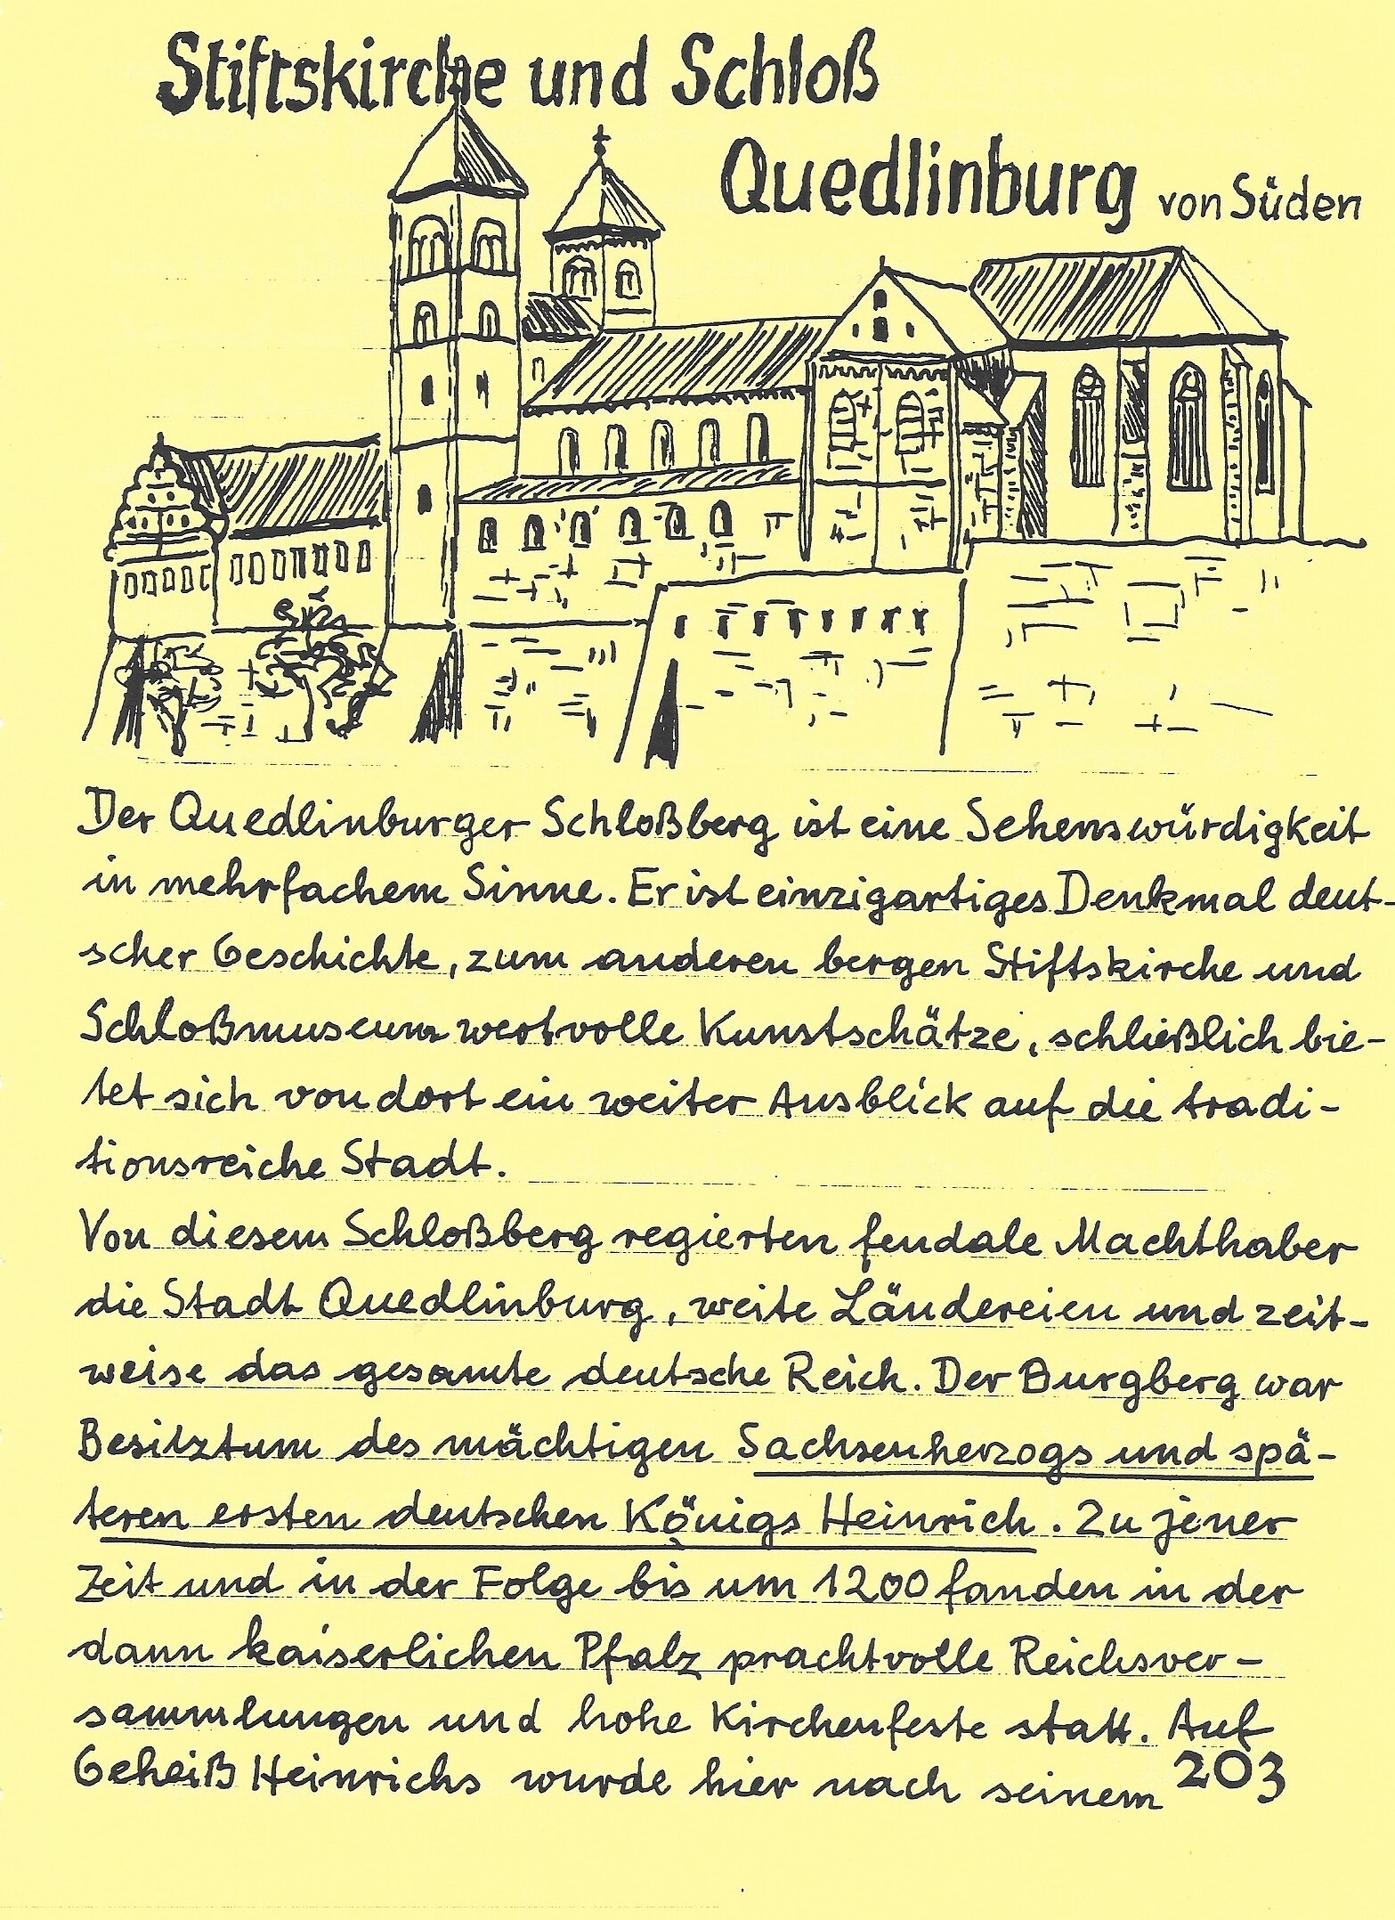 Stiftskirche und Schloß
Quedlinburg von Süden
Der Quedlinburger Schloßberg ist eine Sehenswürdigkeit
in mehrfachem Sinne. Er ist einzigartiges Denkmal deut-
scher Geschichte, zum anderen bergen Stiftskirche und
Schloßmuseum wertvolle Kunstschätze, schließlich bie-
tet sich von dort ein weiter Ausblick auf die tradi-
tionsreiche Stadt.
Von diesem Schloßberg regierten feudale Machthaber
die Stadt Quedlinburg, weite Ländereien und zeit-
weise das gesamte deutsche Reich. Der Burgberg war
Besitztum des mächtigen Sachsenherzogs und spä-
teren ersten deutschen Königs Heinrich. Zu jener
Zeit und in der Folge bis um 1200 fanden in der
dann kaiserlichen Pfalz prachtvolle Reichsver-
sammlungen und hohe Kirchenfeste statt. Auf
Geheiß Heinrichs wurde hier nach seinem
203